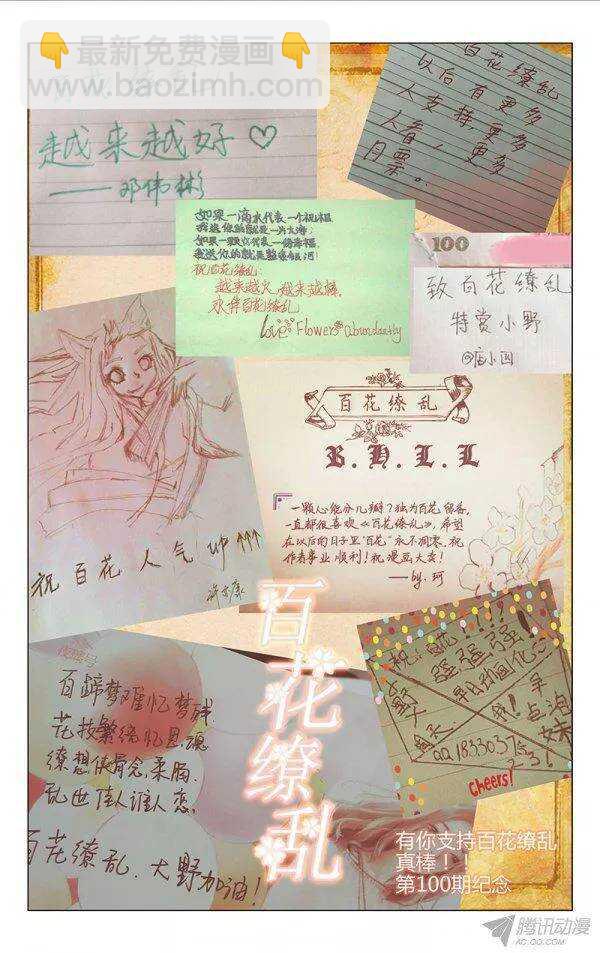 👇最新免费漫画👇
www.baozimh.com
越来越好♡
——邓伟彬
百花缭乱
以后有更多
人支持,更多
人看,更多
月票。
如果一滴水代表一个祝福
我送你的就是一片大海;
祝百花缭乱:
越来越火,越来越棒,
永伴百花缭乱
Love Flowers abundantly
100
致百花缭乱
特赏小野
百花缭乱
B.H.L.L
一颗心能分几瓣?独为百花留香。
一直都很喜欢《百花缭乱》,希望
在以后的日子里“百花”永不凋零。祝
作者事业顺利!祝漫画大卖!
——by.珂
祝百花人气up↑↑↑
百花缭乱
强强强
QQ1833037
Cheers!
百蹄梦难忆梦残
花枝繁络忆思魂
缭想侠骨念柔肠
乱世佳人谁人恋。
百花缭乱,大野加油!
有你支持百花缭乱
真棒!!
第100期纪念
腾讯动漫
AC.QQ.COM